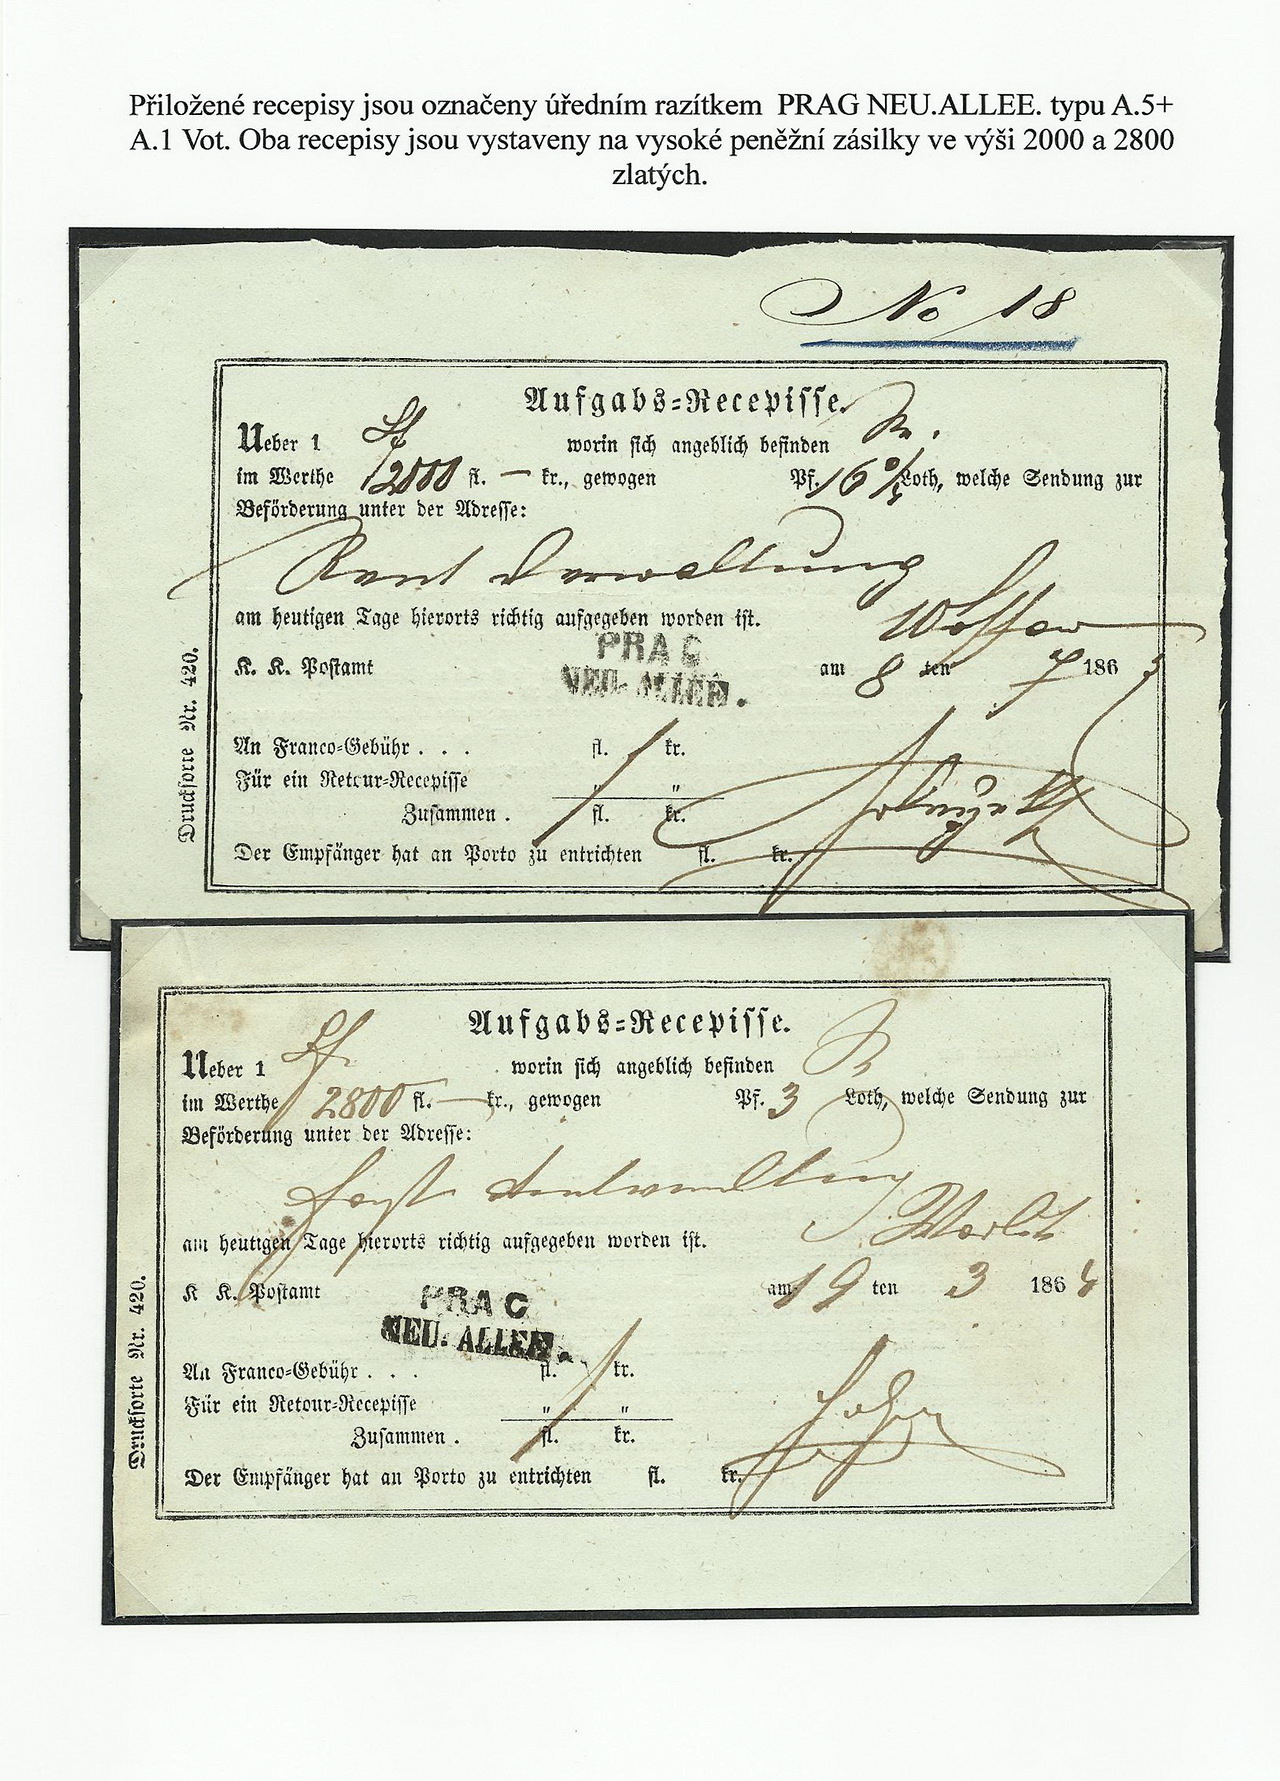 Přiložené recepisy jsou označeny úředním razítkem PRAG NEU.ALLEE. typu A.5+
A.1 Vot. Oba recepisy jsou vystaveny na vysoké peněžní zásilky ve výši 2000 a 2800
zlatých.
No 18
Aufgabs=Recepisse.
Ueber 1 worin sich angeblich befinden
im Werthe 2000 fl. — kr., gewogen Pf. 16 Loth, welche Sendung zur
Beförderung unter der Adresse:
Rent Verwaltung
am heutigen Tage hierorts richtig aufgegeben worden ist.
PRAG
NEU. ALLEE.
K. K. Postamt am 8 ten 7 186
An Franco=Gebühr . . . fl. kr.
Für ein Retour=Recepisse " "
Zusammen . fl. kr.
Der Empfänger hat an Porto zu entrichten fl. kr.
Drucksorte Nr. 420.
Aufgabs=Recepisse.
Ueber 1 worin sich angeblich befinden
im Werthe 2800 fl. — kr., gewogen Pf. 3 Loth, welche Sendung zur
Beförderung unter der Adresse:
am heutigen Tage hierorts richtig aufgegeben worden ist.
Worlik
K K. Postamt am 19 ten 3 186
PRAG
NEU. ALLEE.
An Franco=Gebühr . . . fl. kr.
Für ein Retour=Recepisse " "
Zusammen . fl. kr.
Der Empfänger hat an Porto zu entrichten fl. kr.
Drucksorte Nr. 420.